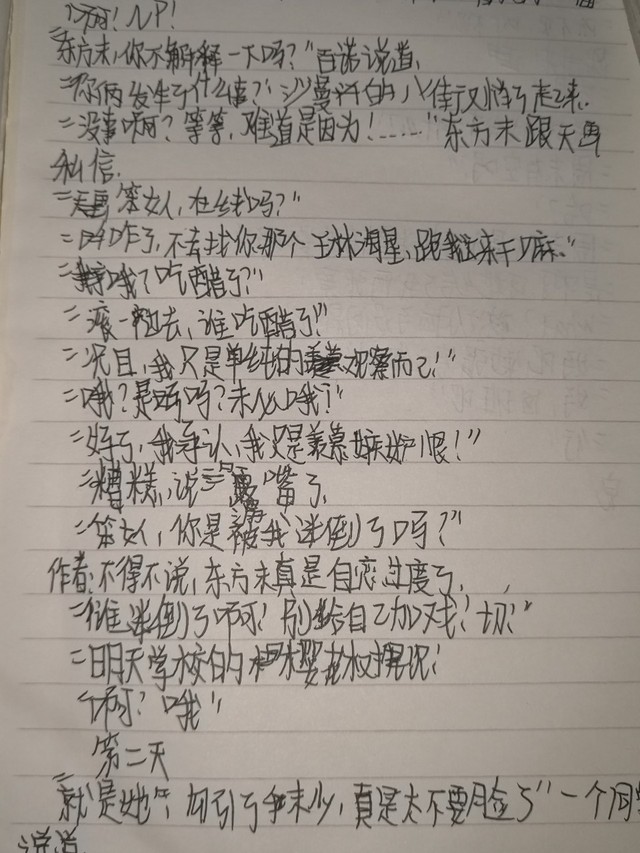 "啊! NP!
东方末,你不解释一下吗?"百诺说道,
"你俩发生了什么情?"沙曼奸的八街又悄了起来.
"没事啊?等等,难道是因为!……"东方末跟天画
私信.
"笨女人,在线吗?"
"叫咋了,不去找你那个王林海星,跑我这来干嘛."
"哦?吃醋了?"
"滚一边去,谁吃醋了!"
"况且,我只是单纯的观察而己!"
"哦?是吗吗?未必哦?"
"好了,我承认,我只是羡慕嫉妒恨!"
"糟糕,说露嘴了,
"笨女人,你是被我迷倒了吗?"
作者:不得不说,东方末真是自恋过度了,
"谁迷倒了啊?别给自己加戏?切?"
"明天学校的樱花树现?
"啊?哦"
第二天
"就是她,勾引了末少,真是太不要脸了"一个同学
说道.